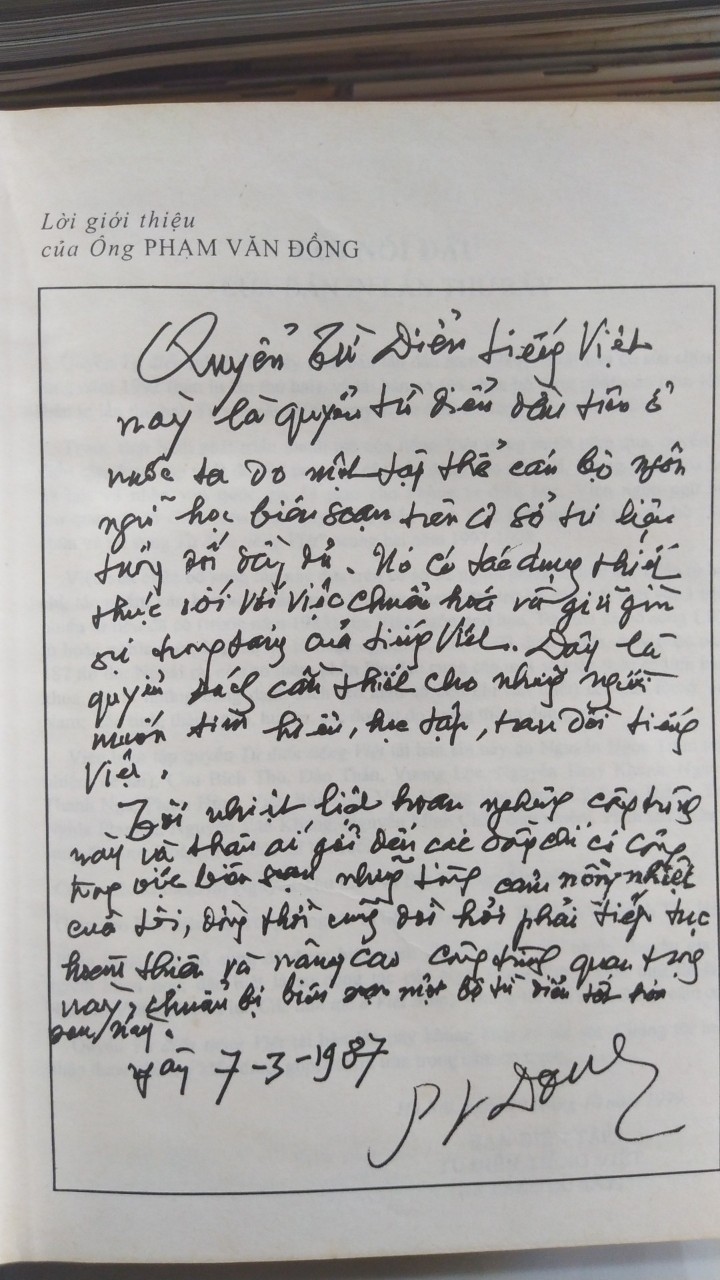 Lời giới thiệu
của Ông PHẠM VĂN ĐỒNG
Quyển Từ Điển tiếng Việt
này là quyển từ điển đầu tiên ở
nước ta do một tập thể cán bộ ngôn
ngữ học biên soạn trên cơ sở tư liệu
tương đối đầy đủ. Nó có tác dụng thiết
thực đối với việc chuẩn hoá và giữ gìn
sự trong sáng của tiếng Việt. Đây là
quyển sách cần thiết cho những người
muốn tìm hiểu, học tập, trau dồi tiếng
Việt.
Tôi nhiệt liệt hoan nghênh công trình
này và thân ái gởi đến các đồng chí có công
trong việc biên soạn những tình cảm nồng nhiệt
của tôi, đồng thời cũng đòi hỏi phải tiếp tục
hoàn thiện và nâng cao công trình quan trọng
này, chuẩn bị biên soạn một bộ từ điển tốt hơn
sau này.
ngày 7-3-1987
PV Dong